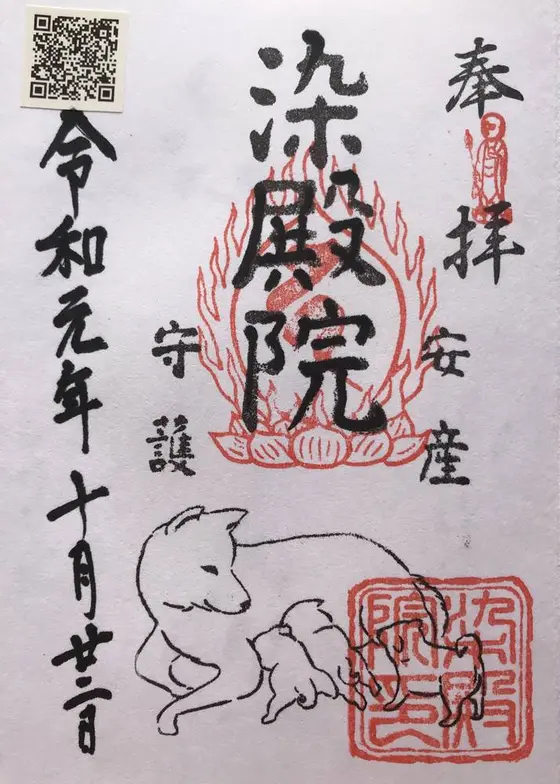 奉拝
安産
染殿院
守護
令和元年十月廿二日
染殿
院印